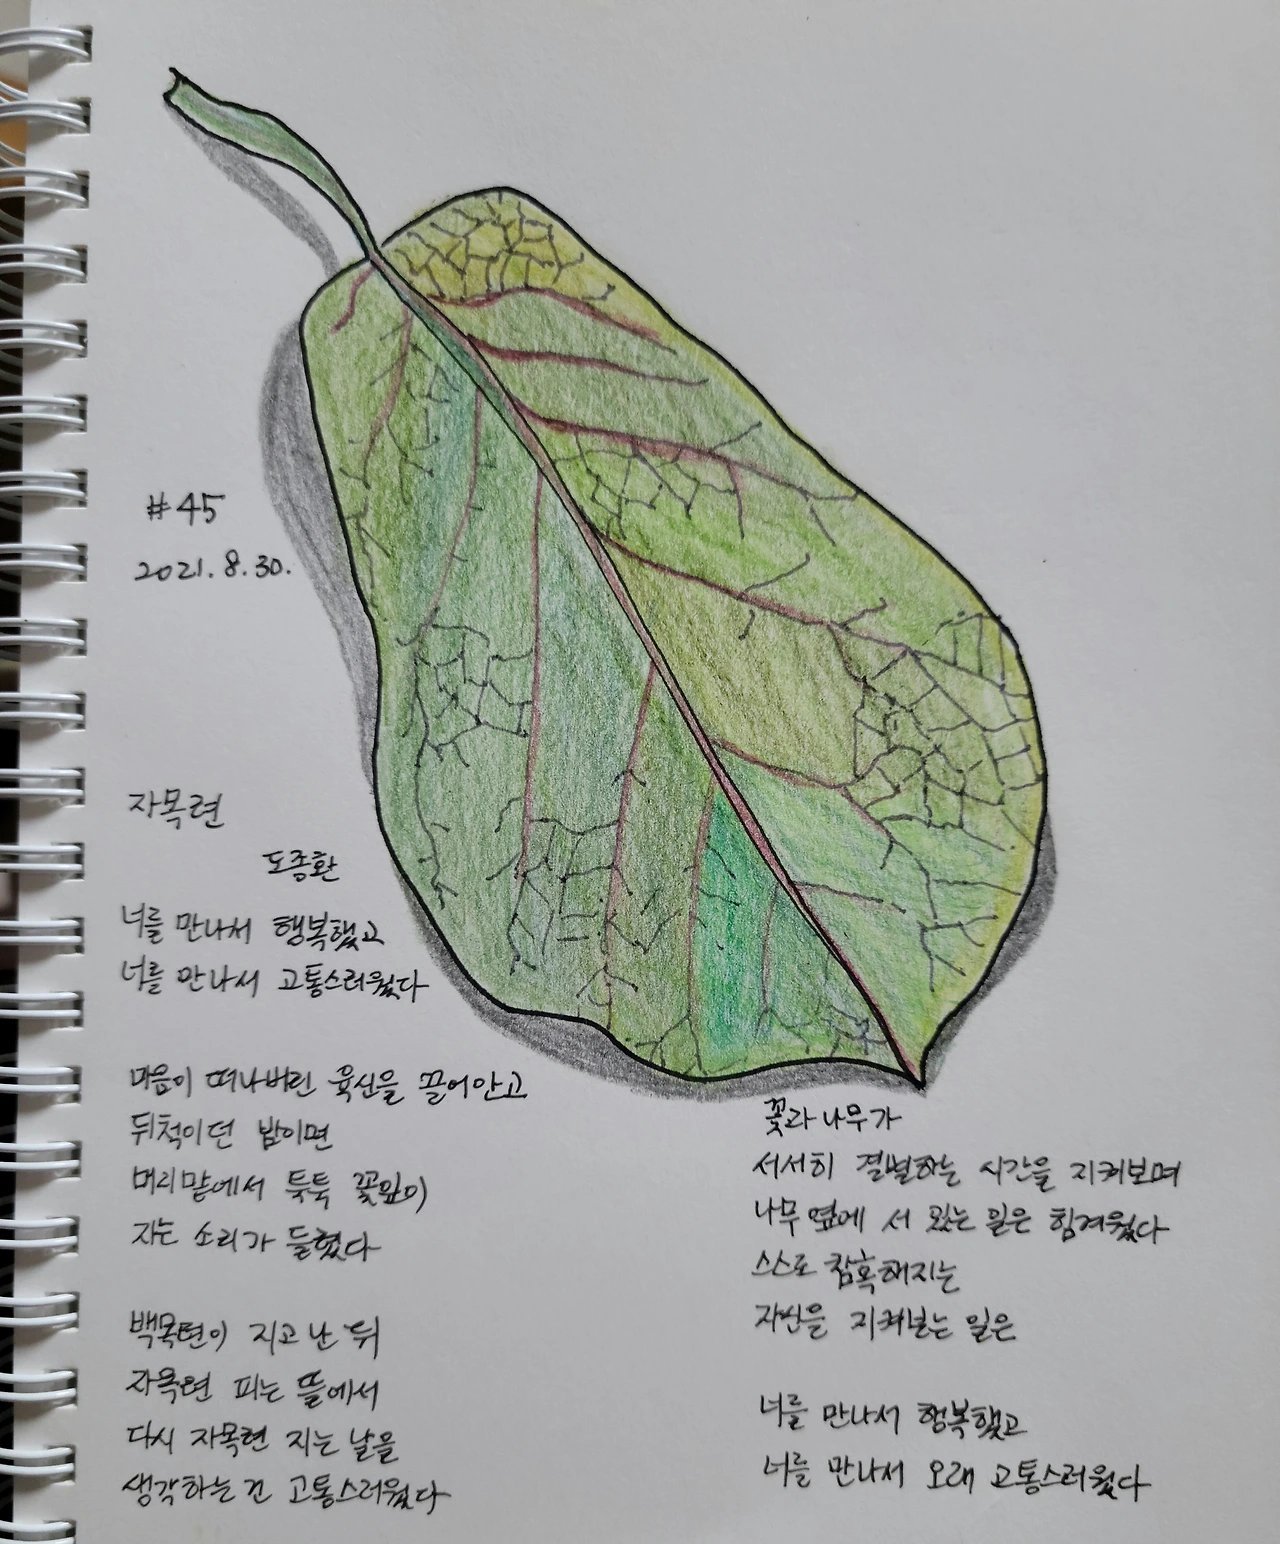 #45
2021. 8. 30.
자목련
도종환
너를 만나서 행복했고
너를 만나서 고통스러웠다
마음이 떠나버린 육신을 끌어안고
뒤척이던 밤이면
머리맡에서 툭툭 꽃잎이
지는 소리가 들렸다
백목련이 지고 난 뒤
자목련 피는 뜰에서
다시 자목련 지는 날을
생각하는 건 고통스러웠다
꽃과 나무가
서서히 결별하는 시간을 지켜보며
나무 옆에 서 있는 일은 힘겨웠다
스스로 참혹해지는
자신을 지켜보는 일은
너를 만나서 행복했고
너를 만나서 오래 고통스러웠다